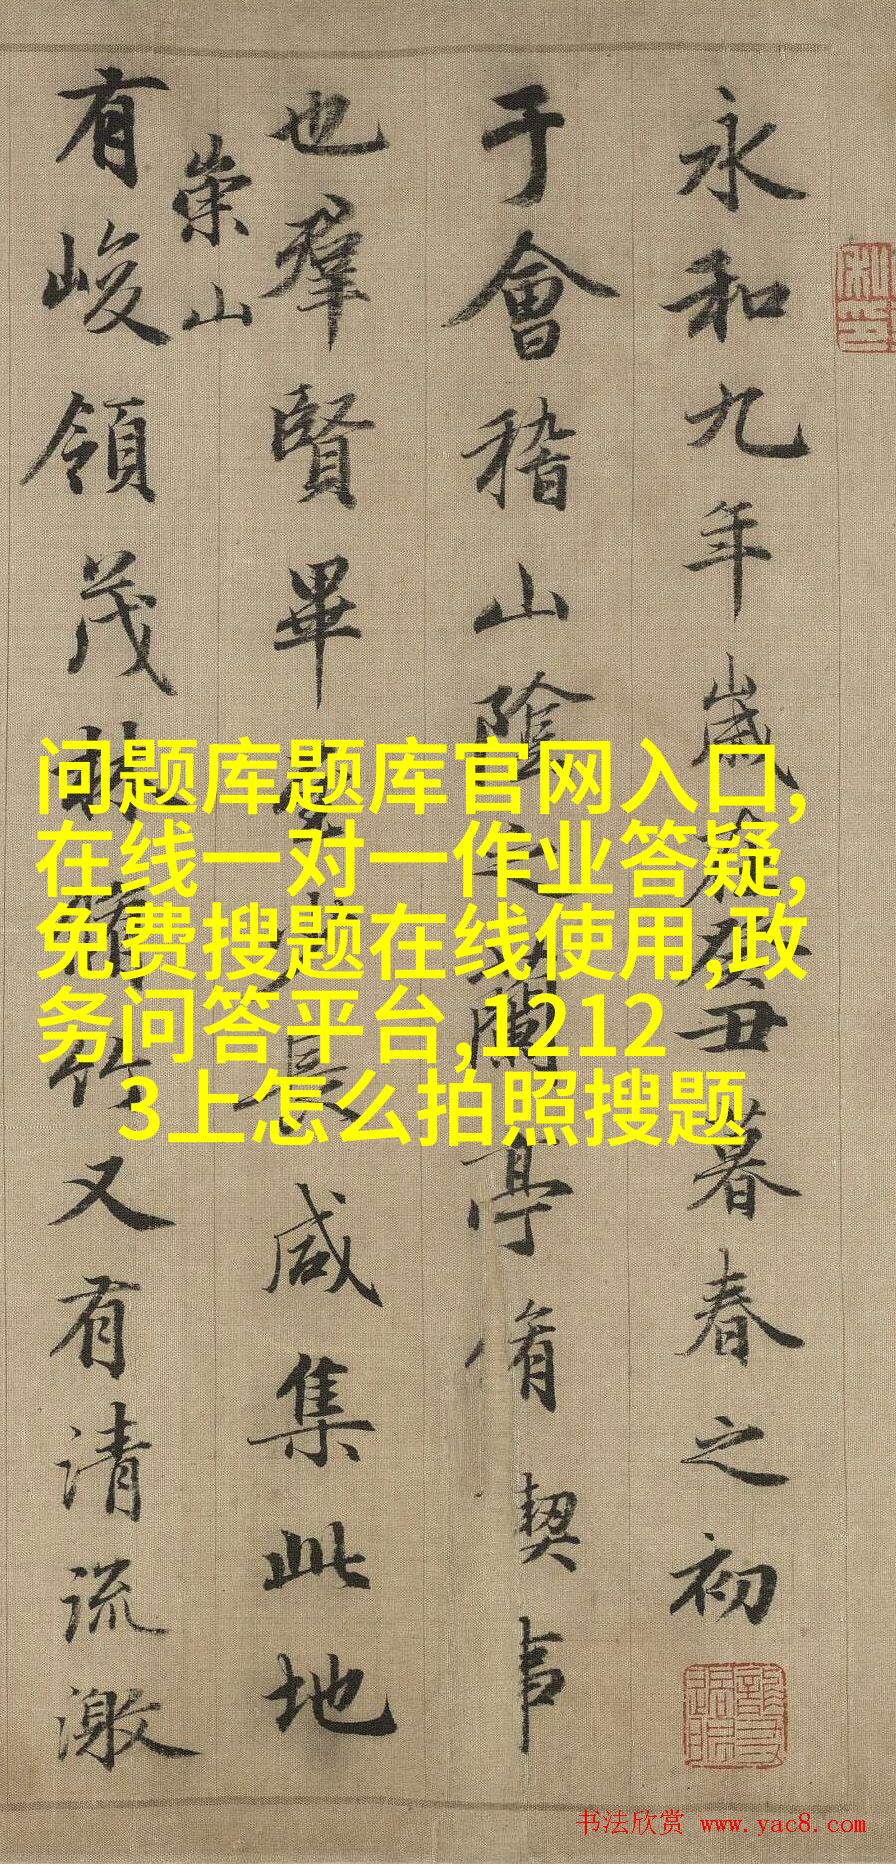 永和九年歲在癸丑暮春之初
于會稽山陰之蘭亭脩禊事
也羣賢畢至少長咸集此地
崇山
有峻領茂林脩竹又有清流激
问题库题库官网入口,
在线一对一作业答疑,
免费搜题在线使用,政
务问答平台,1212
3上怎么拍照搜题
书法欣赏 www.yac8.com